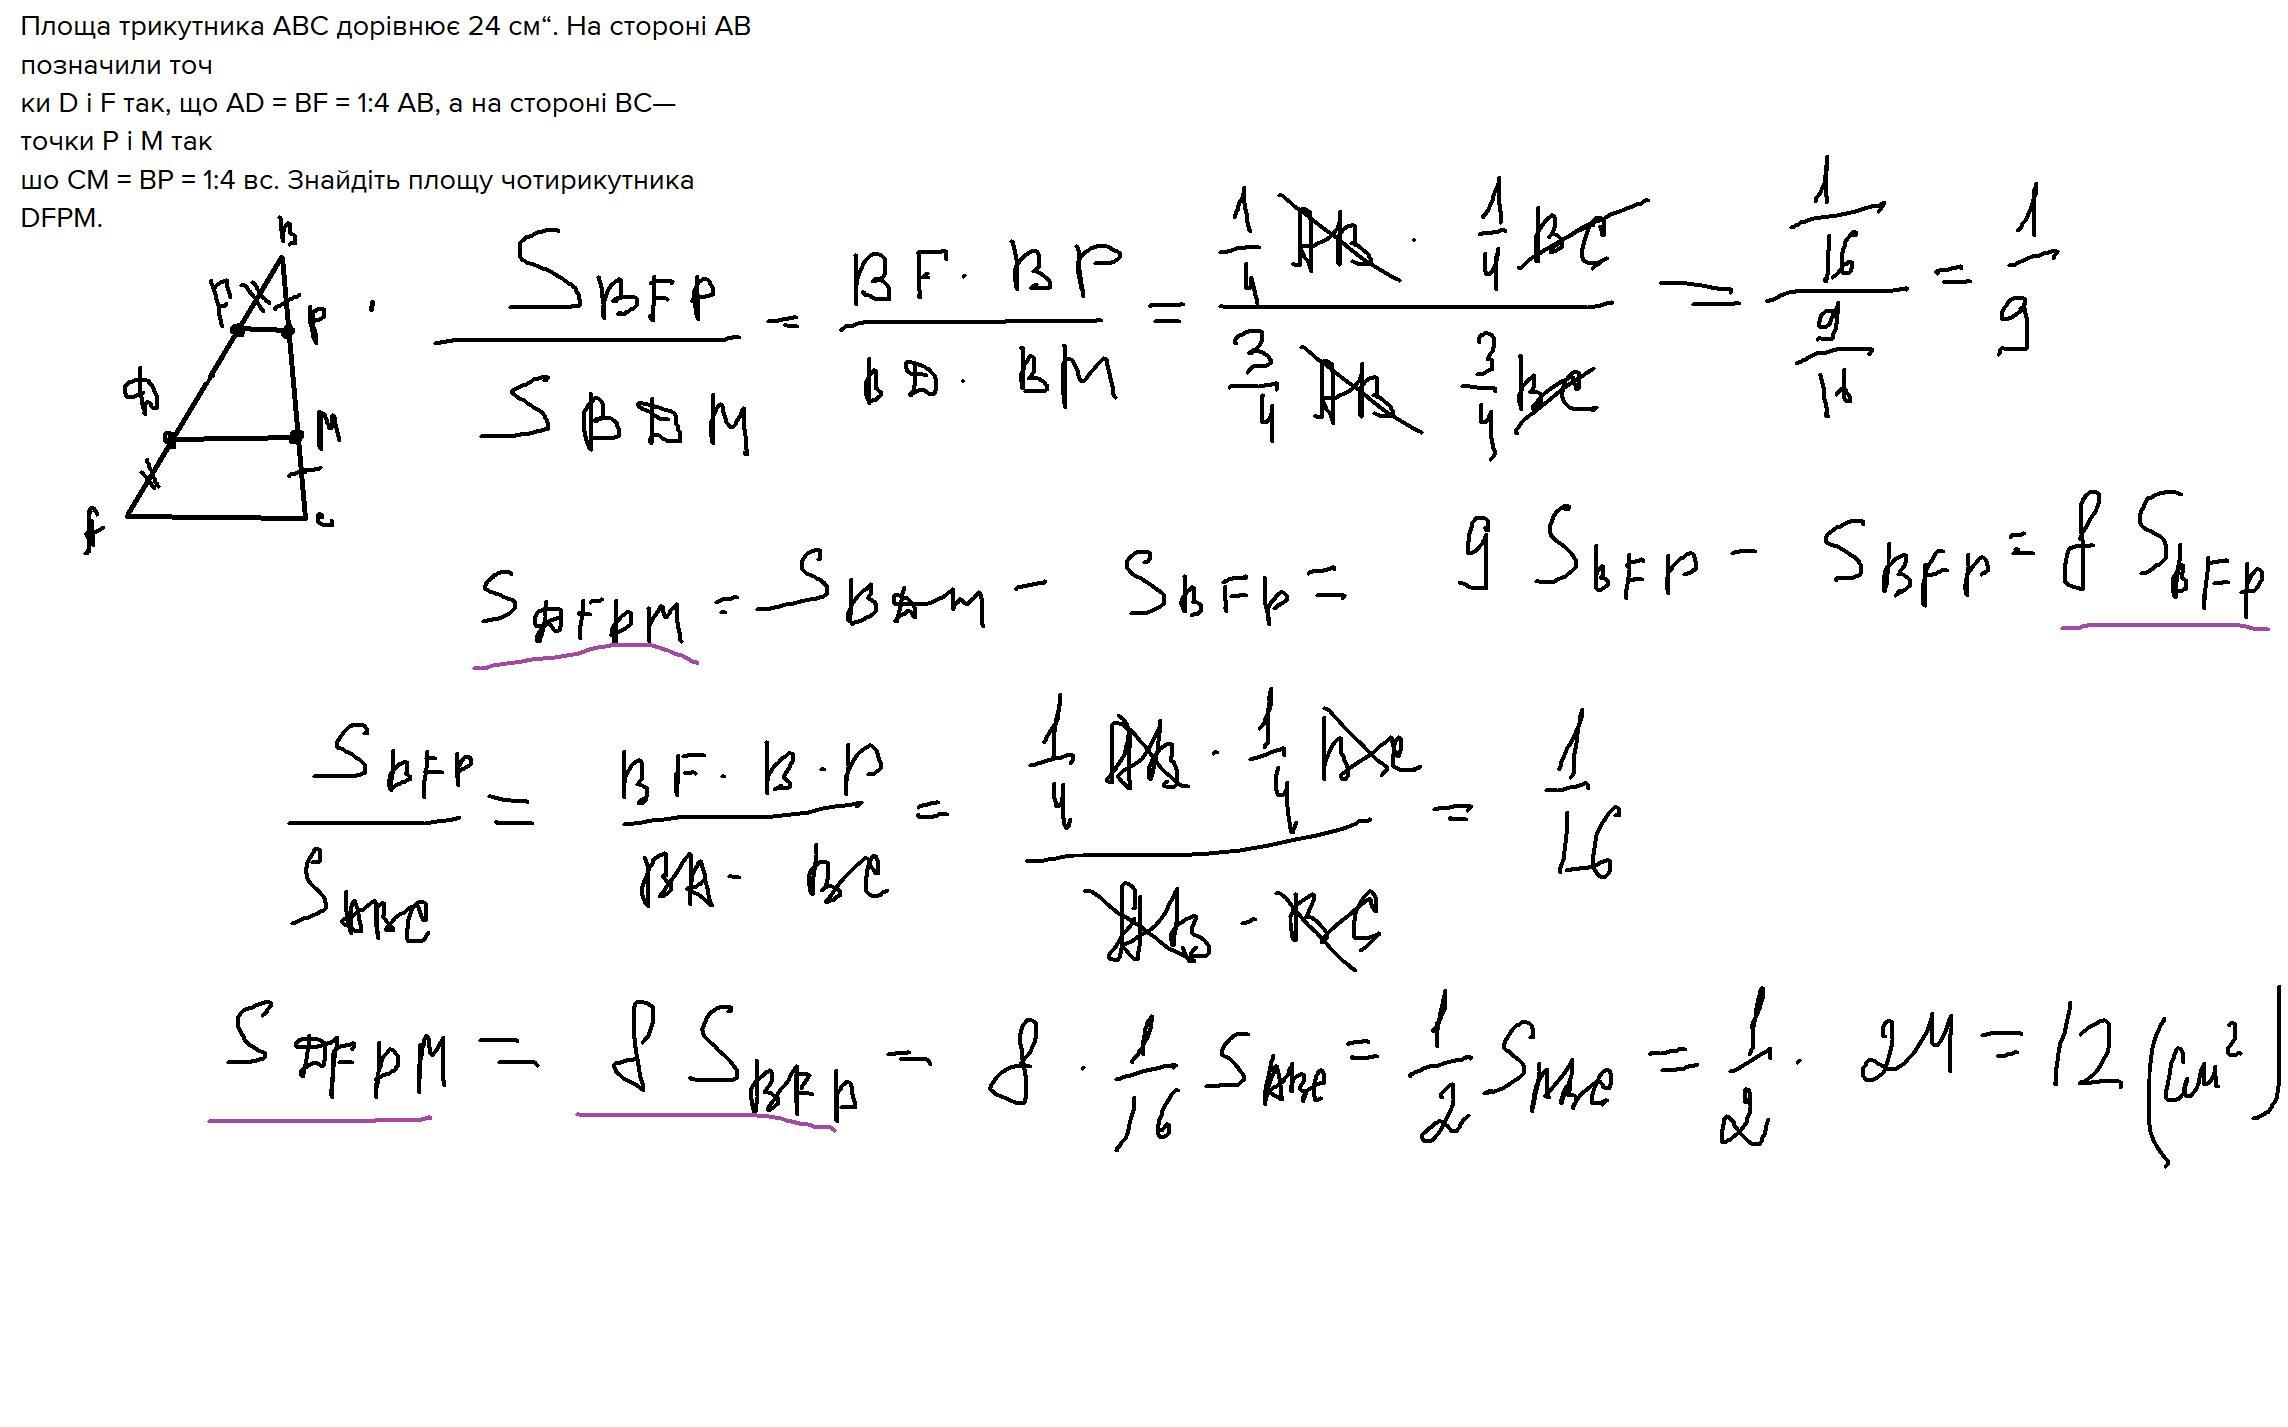 Площа трикутника ABC дорівнює 24 см“. На стороні AB
позначили точ
ки D і F так, що AD = BF = 1:4 AB, а на стороні BC—
точки P і M так
шо CM = BP = 1:4 вс. Знайдіть площу чотирикутника
DFPM.
B
F P
D M
A C
S BFP / S BDM = BF · BP / BD · BM = 1/4 AB · 1/4 BC / 3/4 AB 3/4 BC = 1/16 / 9/16 = 1/9
S DFPM = S BDM − S BFP = 9 S BFP − S BFP = 8 S BFP
S BFP / S ABC = BF · B · P / BA · BC = 1/4 AB · 1/4 BC / AB · BC = 1/16
S DFPM = 8 S BFP = 8 · 1/16 S ABC = 1/2 S ABC = 1/2 · 24 = 12 (см²)